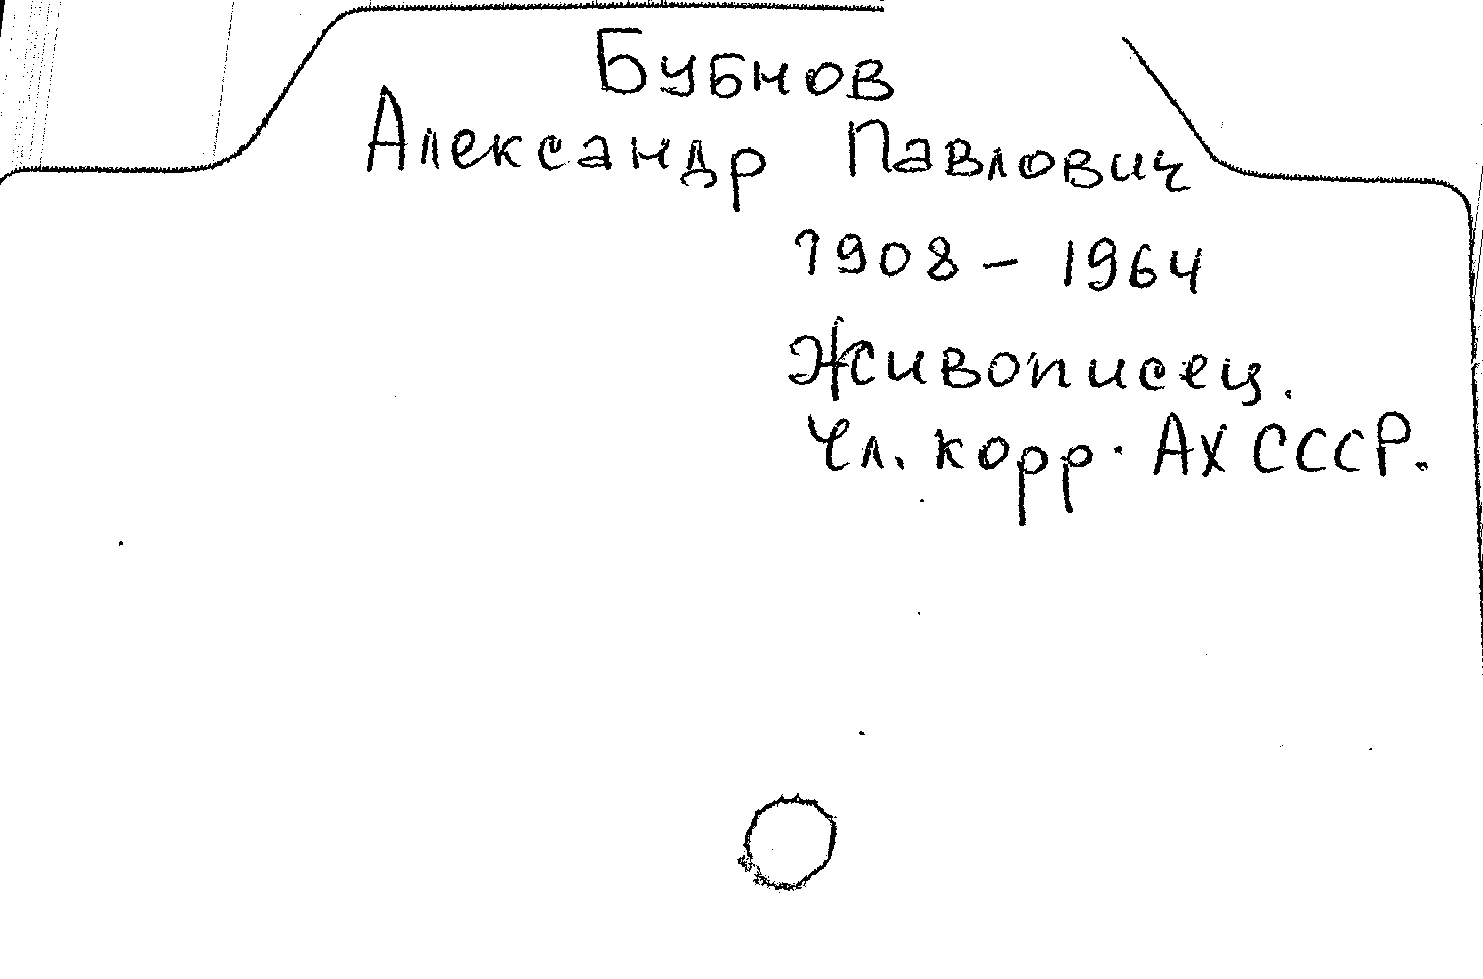 Бубнов
Александр Павлович
1908 – 1964
Живописец.
Чл. корр. АХ СССР.